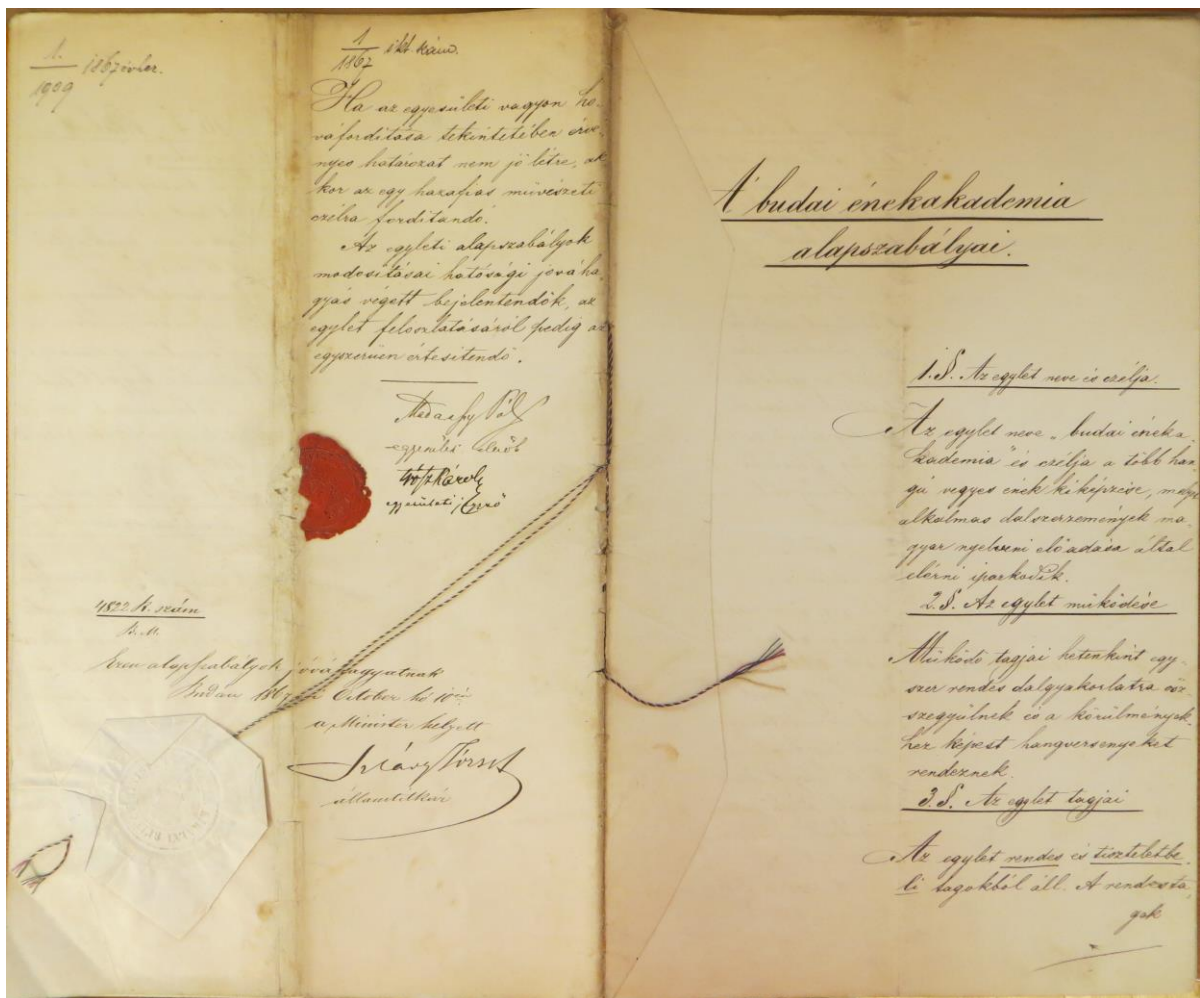 1.
1909
1867 évben.
1
1867
ikt. szám.
Ha az egyesületi vagyon ho-
váfordítása tekintetében érve-
nyes határozat nem jő létre, ak
kor az egy hazafias művészeti
czélra fordítandó.
Az egyleti alapszabályok
modositásai hatósági jováha-
gyás végett bejelentendők, az
egylet feloszlatásáról pedig az
egyszerüen értesitendő.
Pál
egyesületi elnök
Károly
egyesületi jegyző
4822. R. szám
B. M.
Ezen alapszabályok jóváhagyatnak
Budán 1867 October hó 10én
a Minister helyett
államtitkár
A budai énekakademia
alapszabályai.
1. §. Az egylet neve és czélja.
Az egylet neve „budai éneka
kademia" és czélja a több han
gú vegyes ének kiképzése, melyet
alkalmas dalszerzemények ma
gyar nyelveni előadása által
elérni iparkodik.
2. §. Az egylet működése
Működő tagjai hetenkint egy-
szer rendes dalgyakorlatra ösz-
szegyülnek és a körülmények-
hez képest hangversenyeket
rendeznek.
3. §. Az egylet tagjai
Az egylet rendes és tiszteletbe
li tagokból áll. A rendes ta
gok